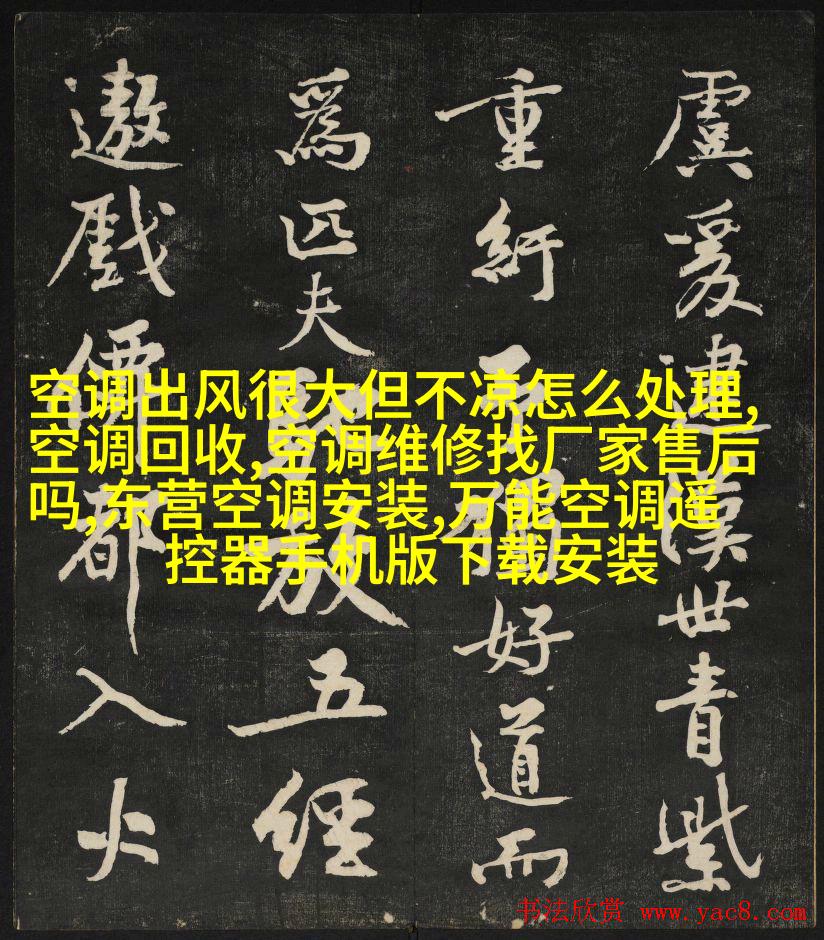 虞爰漢世青紫
重紆好道而
爲匹夫放五經
遨戲都入火
空调出风很大但不凉怎么处理,
空调回收,空调维修找厂家售后
吗,东营空调安装,万能空调遥
控器手机版下载安装
书法欣赏 www.yac8.com